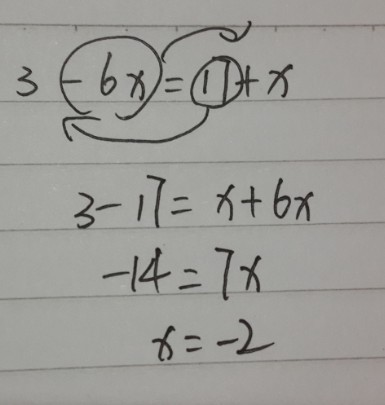 3 - 6x = 17 + x
3 - 17 = x + 6x
-14 = 7x
x = -2